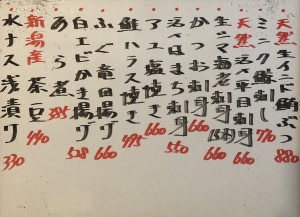 天然生インド鮪ぶつ 880
ミンク鯨刺し 770
天然活〆平目刺身 660
生シマ海老刺身 660
かつお刺身 660
活〆はまち刺身 550
アユ塩焼き 660
鮭ハラス焼き 495
ふぐ竜田揚げ 660
白エビかき揚げ 528
あら煮 395
新潟産茶豆 440
水ナス浅漬け 330